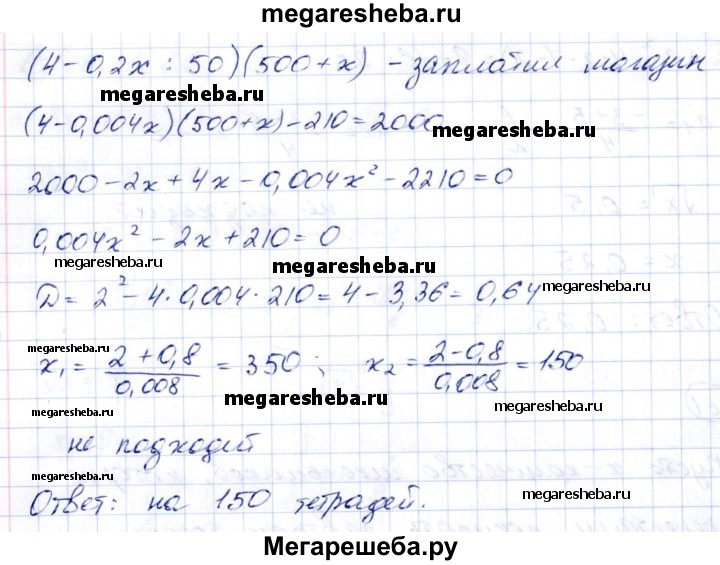 megaresheba.ru
(4-0,2x : 50)(500+x) - заплатил магазин
megaresheba.ru
(4-0,004x)(500+x)-210=2000
megaresheba.ru
2000-2x+4x-0,004x²-2210=0
0,004x²-2x+210=0
megaresheba.ru
megaresheba.ru
D=2²-4·0,004·210=4-3,36=0,64
megaresheba.ru
megaresheba.ru
x₁=(2+0,8)/0,008=350; x₂=(2-0,8)/0,008=150
megaresheba.ru
megaresheba.ru
megaresheba.ru
не подходит
megaresheba.ru
megaresheba.ru
Ответ: на 150 тетрадей.
Мегарешеба.ру